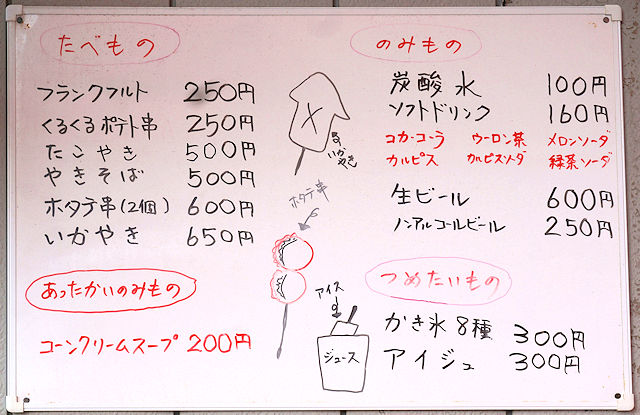 たべもの
フランクフルト 250円
くるくるポテト串 250円
たこやき 500円
やきそば 500円
ホタテ串(2個) 600円
いかやき 650円
あったかいのみもの
コーンクリームスープ 200円
いかやき
ホタテ串
アイス
ジュース
のみもの
炭酸水 100円
ソフトドリンク 160円
コカ・コーラ ウーロン茶 メロンソーダ
カルピス カルピスソーダ 緑茶ソーダ
生ビール 600円
ノンアルコールビール 250円
つめたいもの
かき氷8種 300円
アイジュ 300円